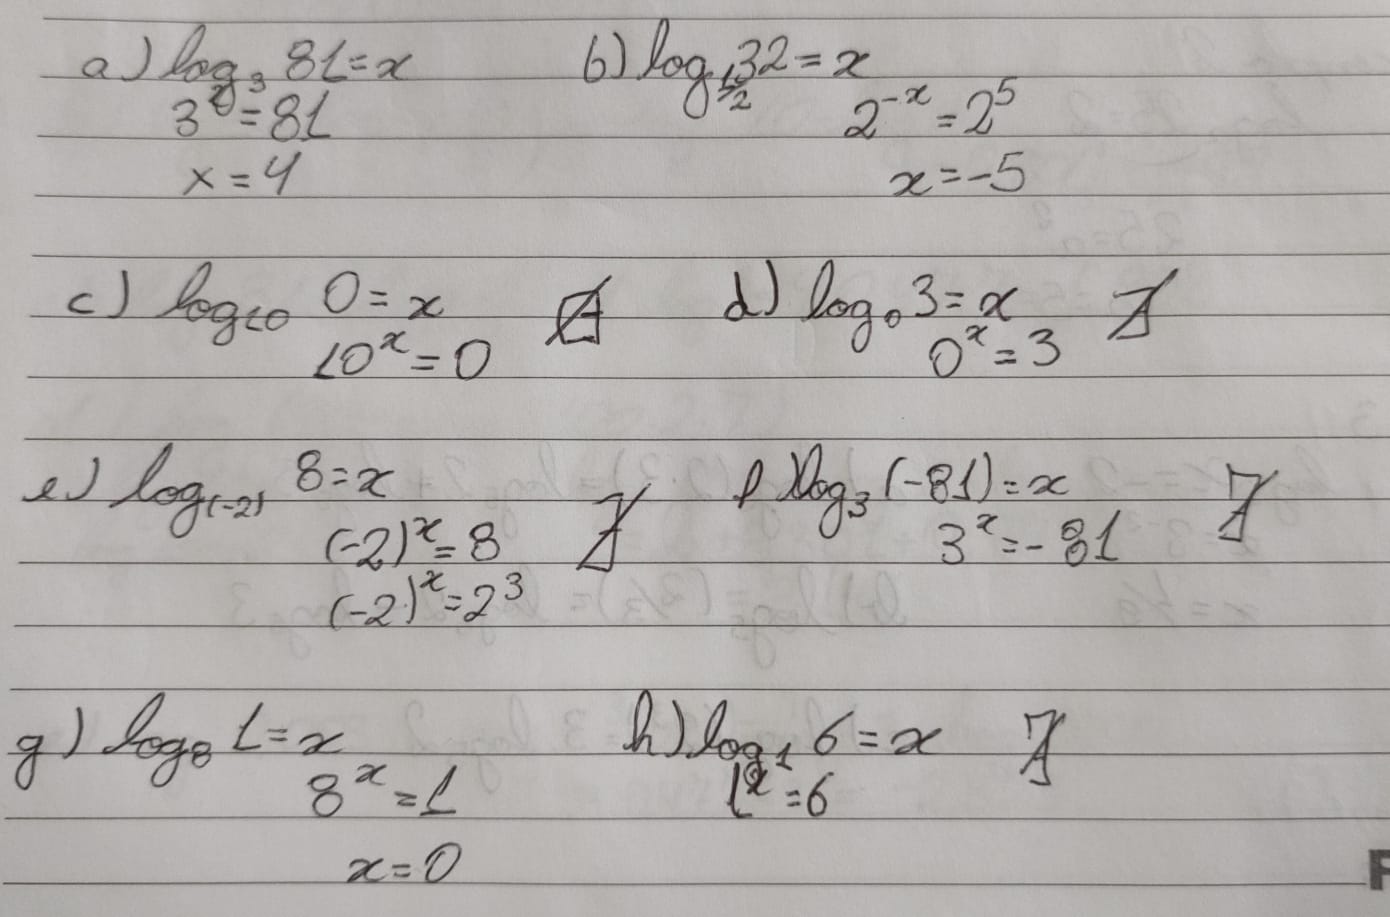 a) log₃ 81 = x
3ˣ = 81
x = 4
b) log₁/₂ 32 = x
2⁻ˣ = 2⁵
x = -5
c) log₁₀ 0 = x ∄
10ˣ = 0
d) log₀ 3 = x ∄
0ˣ = 3
e) log₍₋₂₎ 8 = x
(-2)ˣ = 8 ∄
(-2)ˣ = 2³
f) log₃ (-81) = x ∄
3ˣ = -81
g) log₈ 1 = x
8ˣ = 1
x = 0
h) log₁ 6 = x ∄
1ˣ = 6